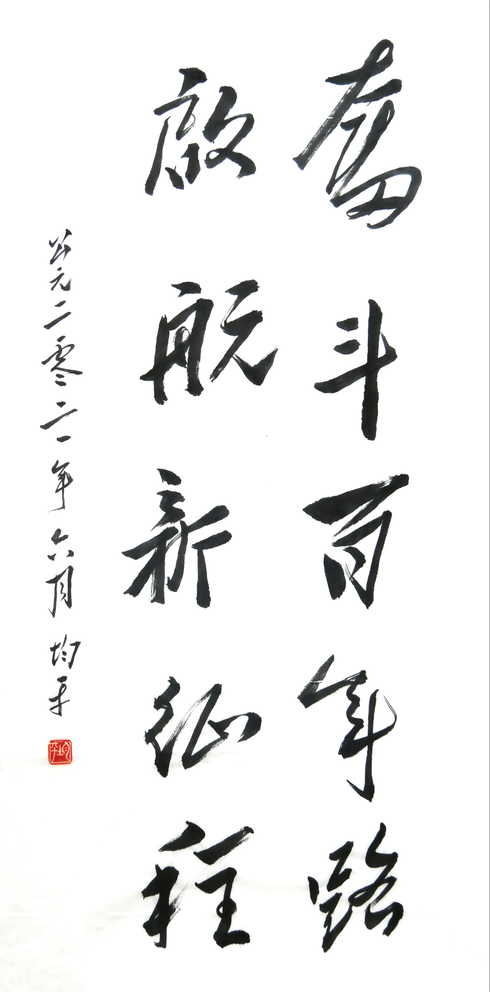 奋斗百年路
启航新征程
公元二零二一年六月 均平
均平